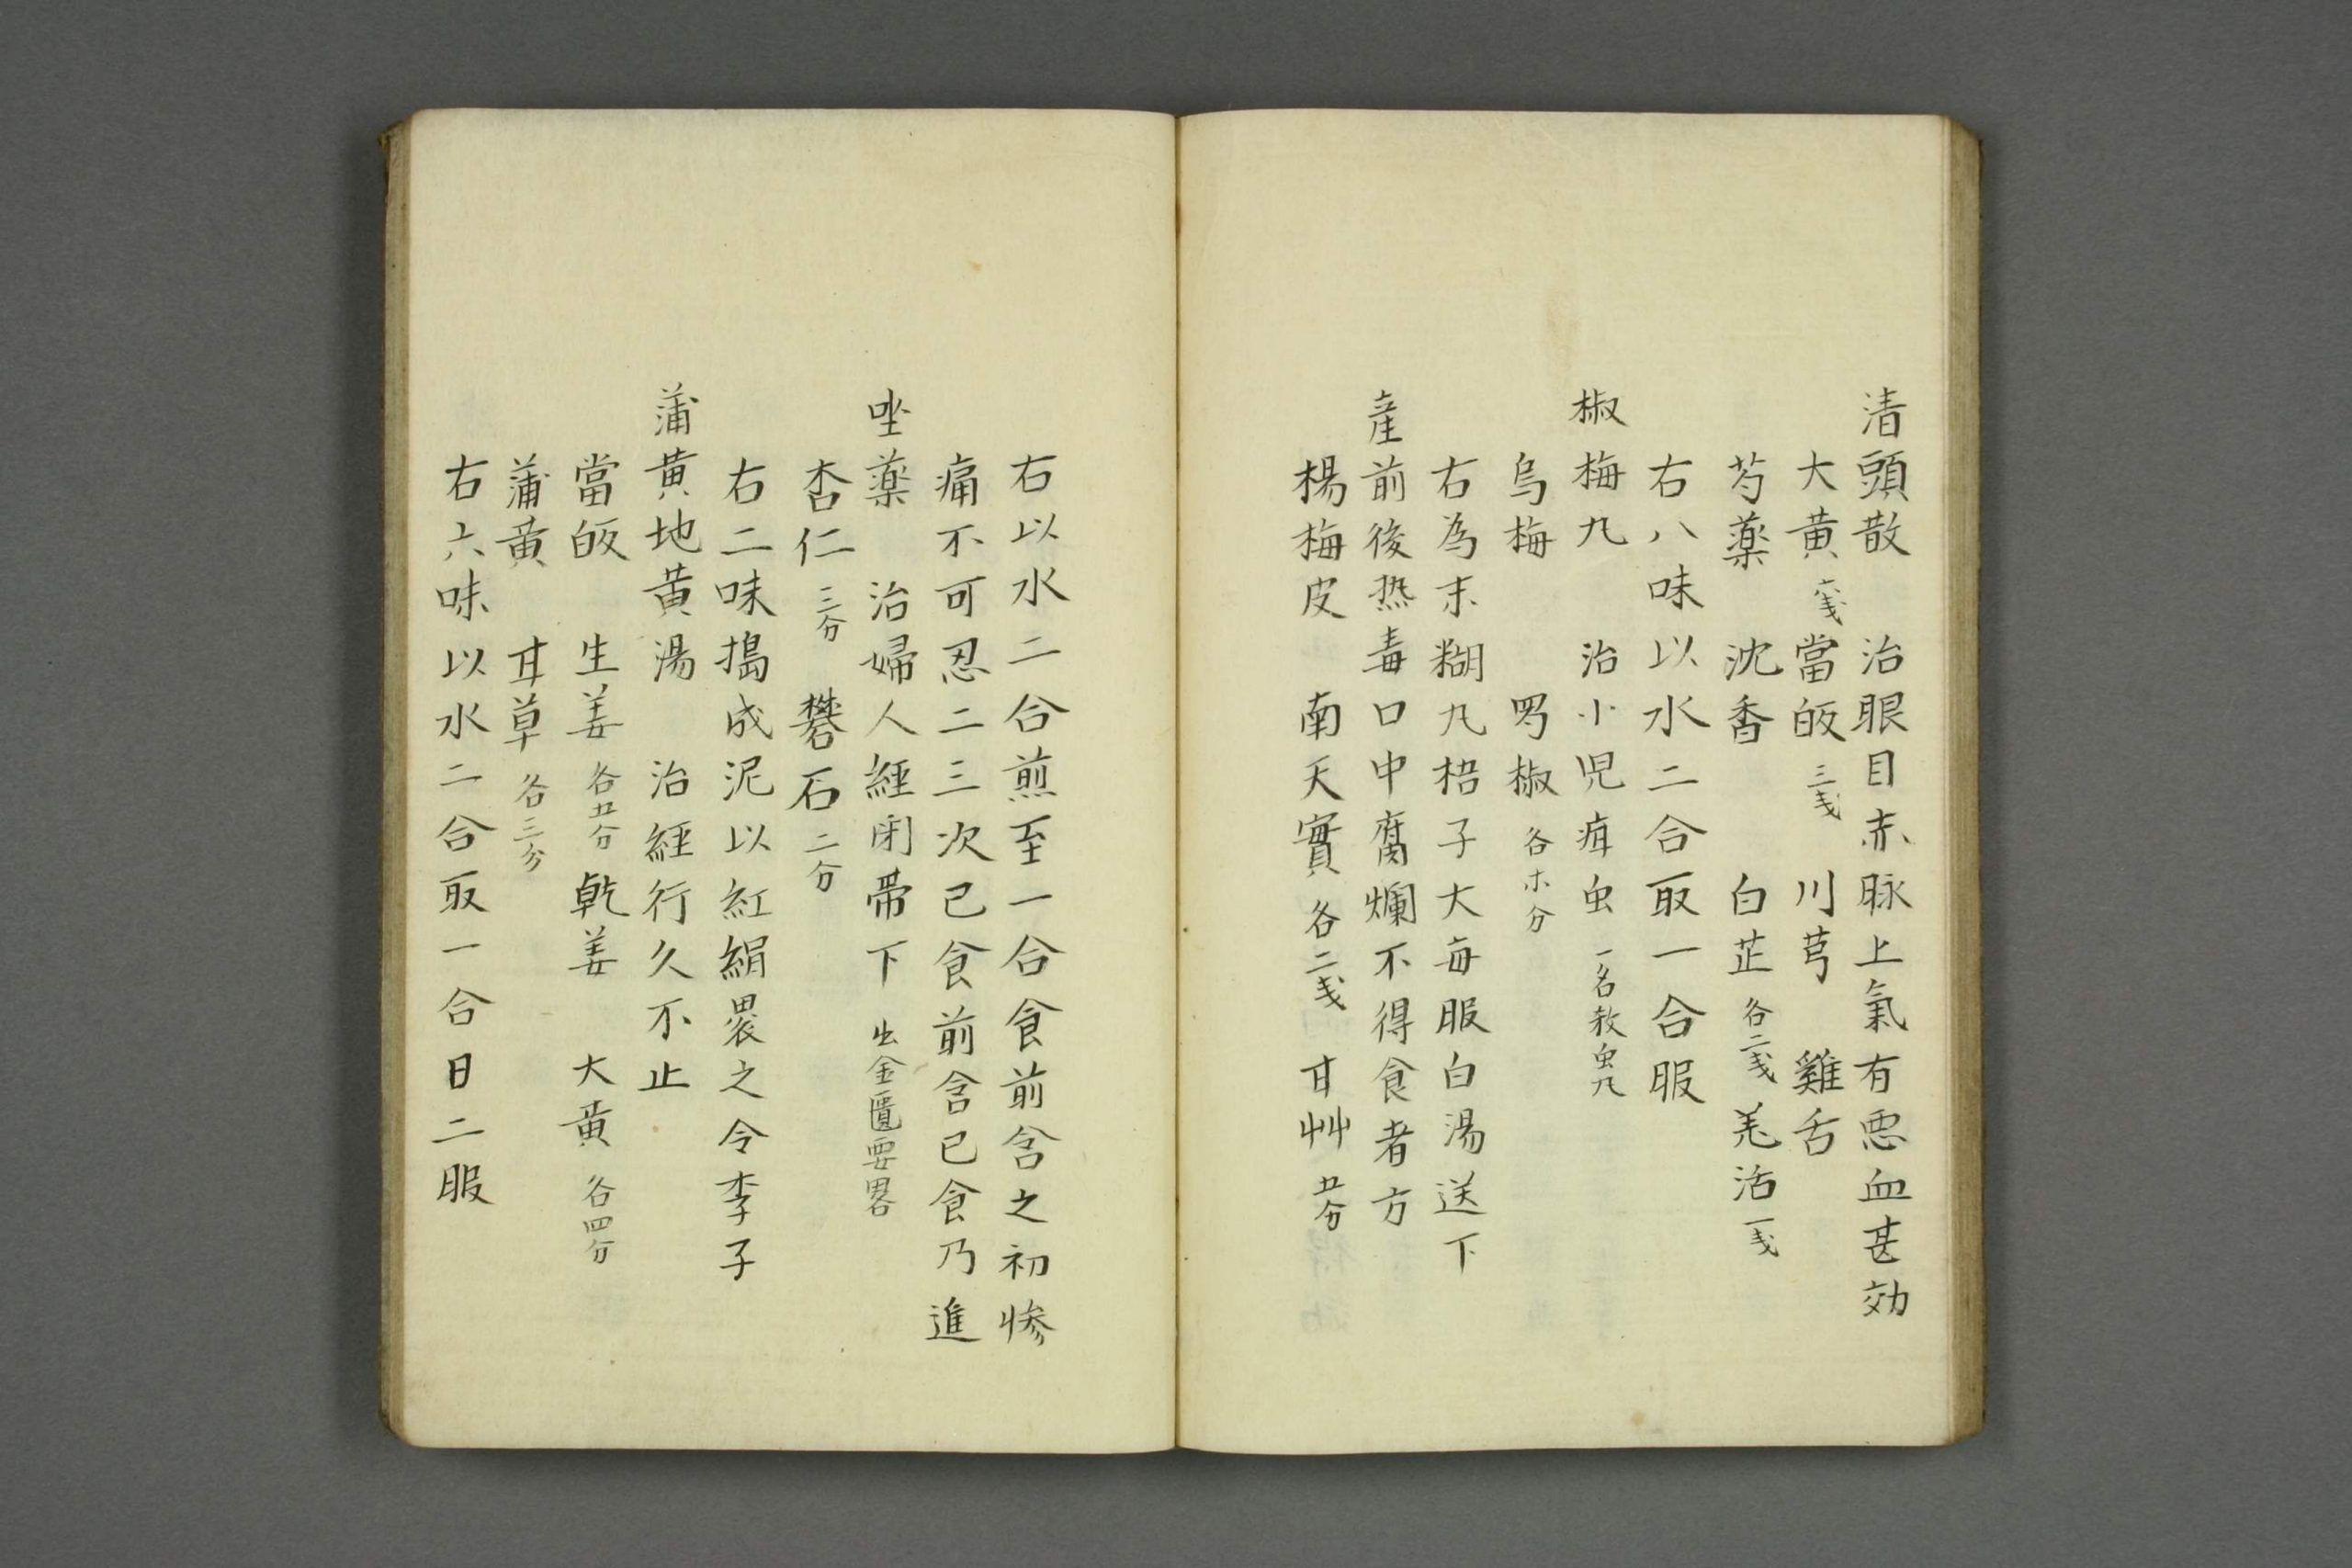 清頭散　治眼目赤脉上氣有悪血甚効
大黄 六戋 當皈 三戋 川芎　雞舌
芍薬　沈香　白芷 各二戋 羌活 一戋
右八味以水二合取一合服
椒梅九　治小児疳虫 一名殺虫九
烏梅　蜀椒 各等分
右為末糊九梧子大毎服白湯送下
産前後热毒口中腐爛不得食者方
楊梅皮　南天實 各二戋 甘艸 五分
右以水二合煎至一合食前含之初惨
痛不可忍二三次已食前含已食乃進
唑薬　治婦人経閉帶下 出金匱要畧
杏仁 三分 礬石 二分
右二味搗成泥以紅絹褁之令李子
蒲黄地黄湯　治経行久不止
當皈　生姜 各五分 乾姜　大黄 各四分
蒲黄　甘草 各三分
右六味以水二合取一合日二服